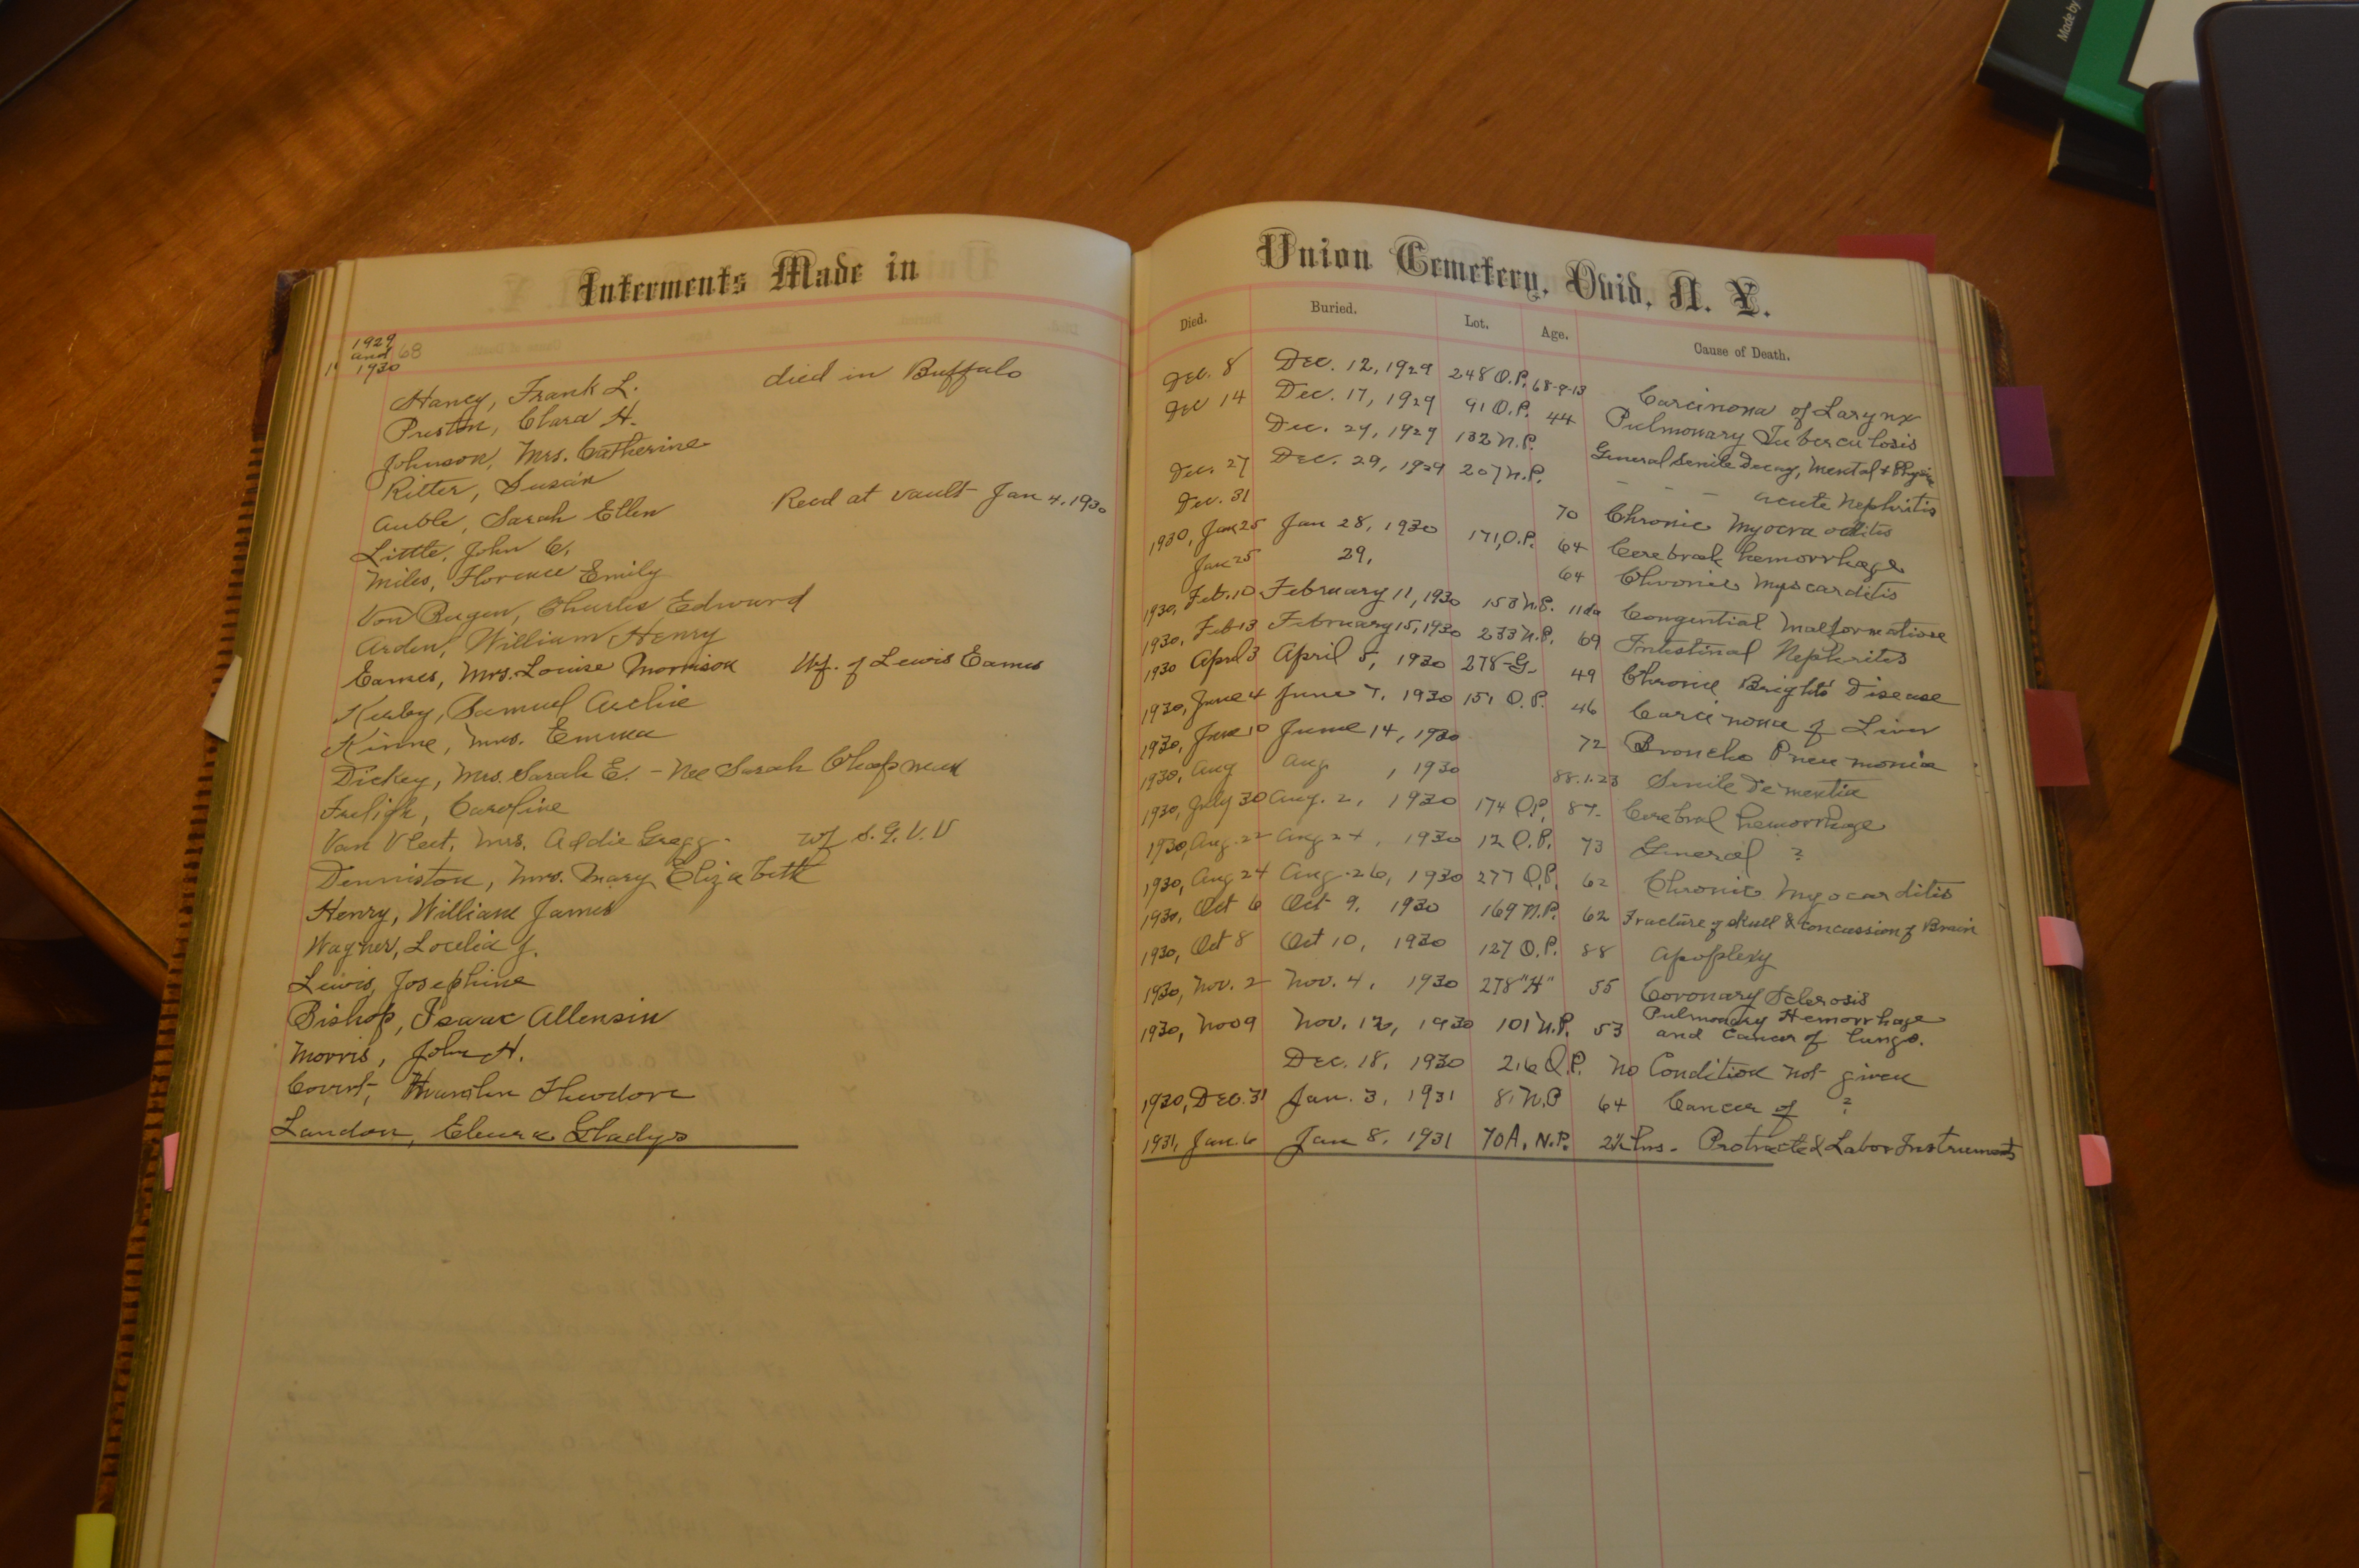 Made by
Interments Made in
1929
and 68
1930
Haney, Frank L. died in Buffalo
Preston, Clara H.
Johnson, Mrs. Catherine
Ritter, Susan
Auble, Sarah Ellen Recd at vault Jan 4, 1930
Little, John C.
Miles, Florence Emily
Von Bugen, Charles Edward
Arden, William Henry
Eames, Mrs. Louise Morrison Wf. of Lewis Eames
Kirby, Samuel Archie
Kinne, Mrs. Emma
Dickey, Mrs. Sarah E. - Nee Sarah Chapman
Freligh, Caroline
Van Vleet, Mrs. Addie Gregg - wf S. G. V. V
Denniston, Mrs. Mary Elizabeth
Henry, William James
Wagner, Locelia J.
Lewis, Josephine
Bishop, Isaac Allensin
Morris, John H.
Covert, Theodore
Landon, Gladys
Union Cemetery, Ovid, N. Y.
Died. Buried. Lot. Age. Cause of Death.
Dec. 8 Dec. 12, 1929 248 O.P. 68-9-13 Carcinona of Larynx
Dec 14 Dec. 17, 1929 91 O.P. 44 Pulmonary Tuberculosis
Dec. 24, 1929 132 N.P. General Senile Decay, Mental &
Dec. 27 Dec. 29, 1929 207 N.P. - - - acute Nephritis
Dec. 31 70 Chronic
1930, Jan 25 Jan 28, 1930 171, O.P. 64 Cerebral hemorrhage
Jan 25 29, 64 Chronic Myocarditis
1930, Feb. 10 February 11, 1930 153 N.P. 11 da Congential Malformations
1930, Feb 13 February 15, 1930 233 N.P. 69 Intestinal Nephritis
1930 April 3 April 5, 1930 278-G- 49 Chronic Brights' Disease
1930, June 4 June 7, 1930 151 O.P. 46 Carcinona of Liver
1930, June 10 June 14, 1930 72 Broncho Pneumonia
1930, Aug Aug , 1930 88.1.23 Senile Dementia
1930, July 30 Aug. 2, 1930 174 O.P. 87- Cerebral hemorrhage
1930, Aug. 22 Aug 24, 1930 12 O.P. 73 General ?
1930, Aug 24 Aug. 26, 1930 277 O.P. 62 Chronic Myocarditis
1930, Oct 6 Oct 9, 1930 169 N.P. 62 Fracture of skull & concussion of Brain
1930, Oct 8 Oct 10, 1930 127 O.P. 88 Apoplexy
1930, Nov. 2 Nov. 4, 1930 278 "H" 55 Coronary Sclerosis
1930, Nov 9 Nov. 12, 1930 101 N.P. 53 Pulmonary Hemorrhage
and Cancer of lungs.
Dec. 18, 1930 216 O.P. No Condition not given
1930, Dec. 31 Jan. 3, 1931 81 N.P 64 Cancer of ?
1931, Jan. 6 Jan 8, 1931 70 A. N.P. 2½ hrs. Protracted Labor Instruments